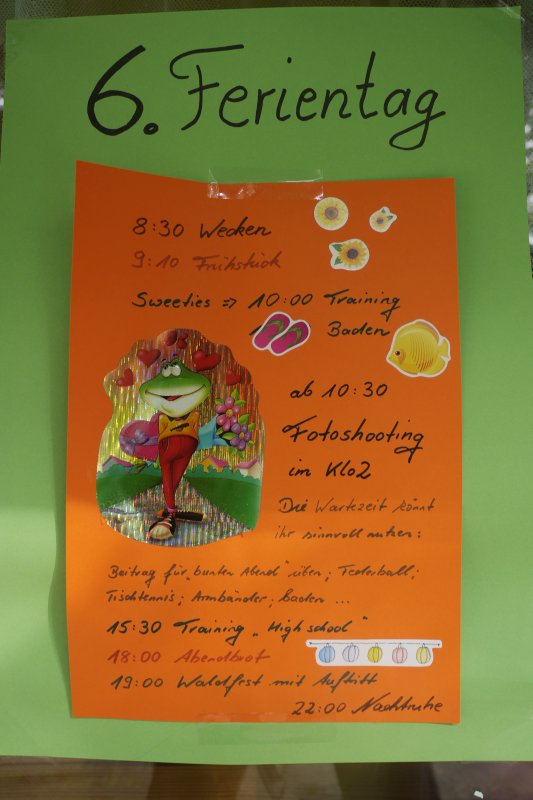 6. Ferientag
8:30 Wecken
9:10 Frühstück
Sweeties => 10:00 Training
Baden
ab 10:30
Fotoshooting
im Klo2
Die Wartezeit könnt
ihr sinnvoll nutzen:
Beitrag für "bunten Abend" üben; Federball;
Tischtennis; Armbänder; baden ...
15:30 Training "High school"
18:00 Abendbrot
19:00 Waldfest mit Auftritt
22:00 Nachtruhe